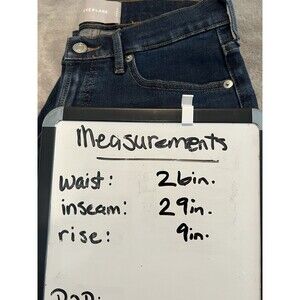 EVERLANE
Measurements
waist: 26in.
inseam: 29in.
rise: 9in.